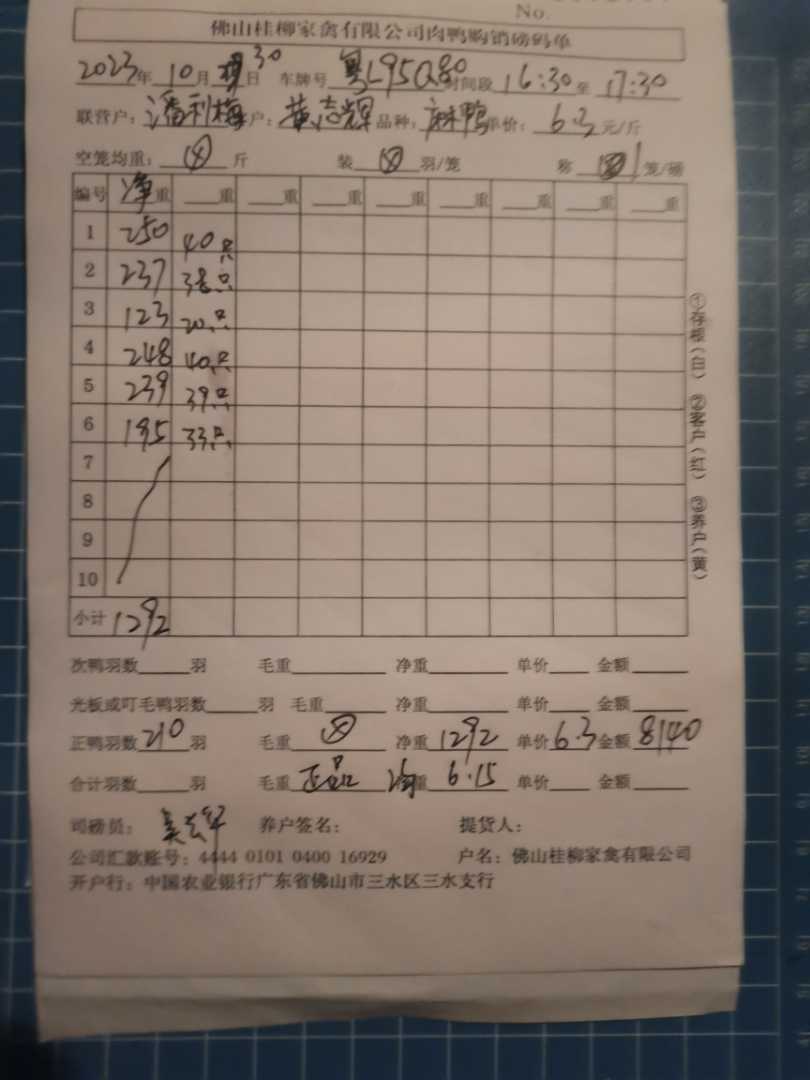 No.
佛山桂柳家禽有限公司肉鸭购销磅码单
2023年 10月 30日 车牌号 粤L95Q80 时间段 16:30至 17:30
联营户: 潘利梅 户: 黄志辉 品种: 麻鸭 单价: 6.3元/斤
空笼均重: 斤 装 羽/笼 称 笼/磅
编号 净重 重 重 重 重 重 重 重 重
1 250 40只
2 237 38只
3 123 20只
4 248 40只
5 239 39只
6 195 33只
7
8
9
10
小计 1292
①存根(白) ②客户(红) ③养户(黄)
次鸭羽数 羽 毛重 净重 单价 金额
光板或叮毛鸭羽数 羽 毛重 净重 单价 金额
正鸭羽数210羽 毛重 净重1292 单价6.3 金额8140
合计羽数 羽 毛重 正品 均重 6.15 单价 金额
司磅员: 养户签名: 提货人:
公司汇款账号: 4444 0101 0400 16929 户名: 佛山桂柳家禽有限公司
开户行: 中国农业银行广东省佛山市三水区三水支行